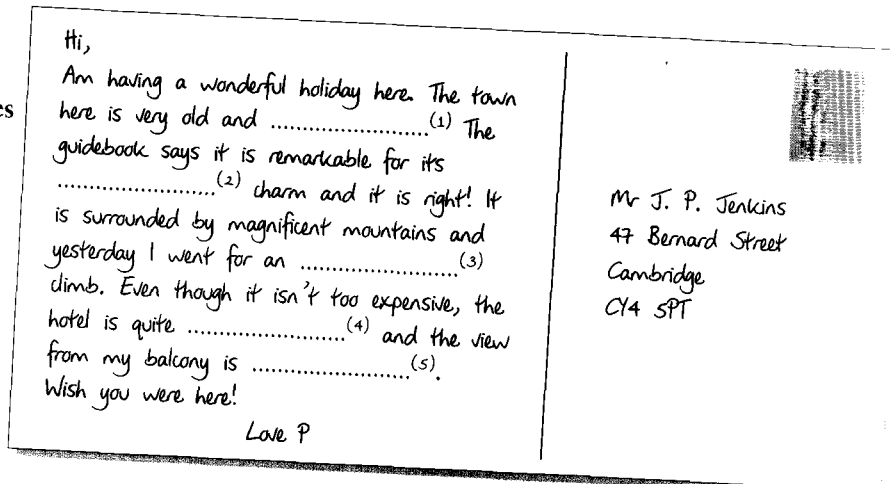 es
Hi,
Am having a wonderful holiday here. The town
here is very old and ............................(1) The
guidebook says it is remarkable for its
............................(2) charm and it is right! It
is surrounded by magnificent mountains and
yesterday I went for an ............................(3)
climb. Even though it isn't too expensive, the
hotel is quite ............................(4) and the view
from my balcony is ............................(5).
Wish you were here!
Love P
Mr J. P. Jenkins
47 Bernard Street
Cambridge
CY4 5PT